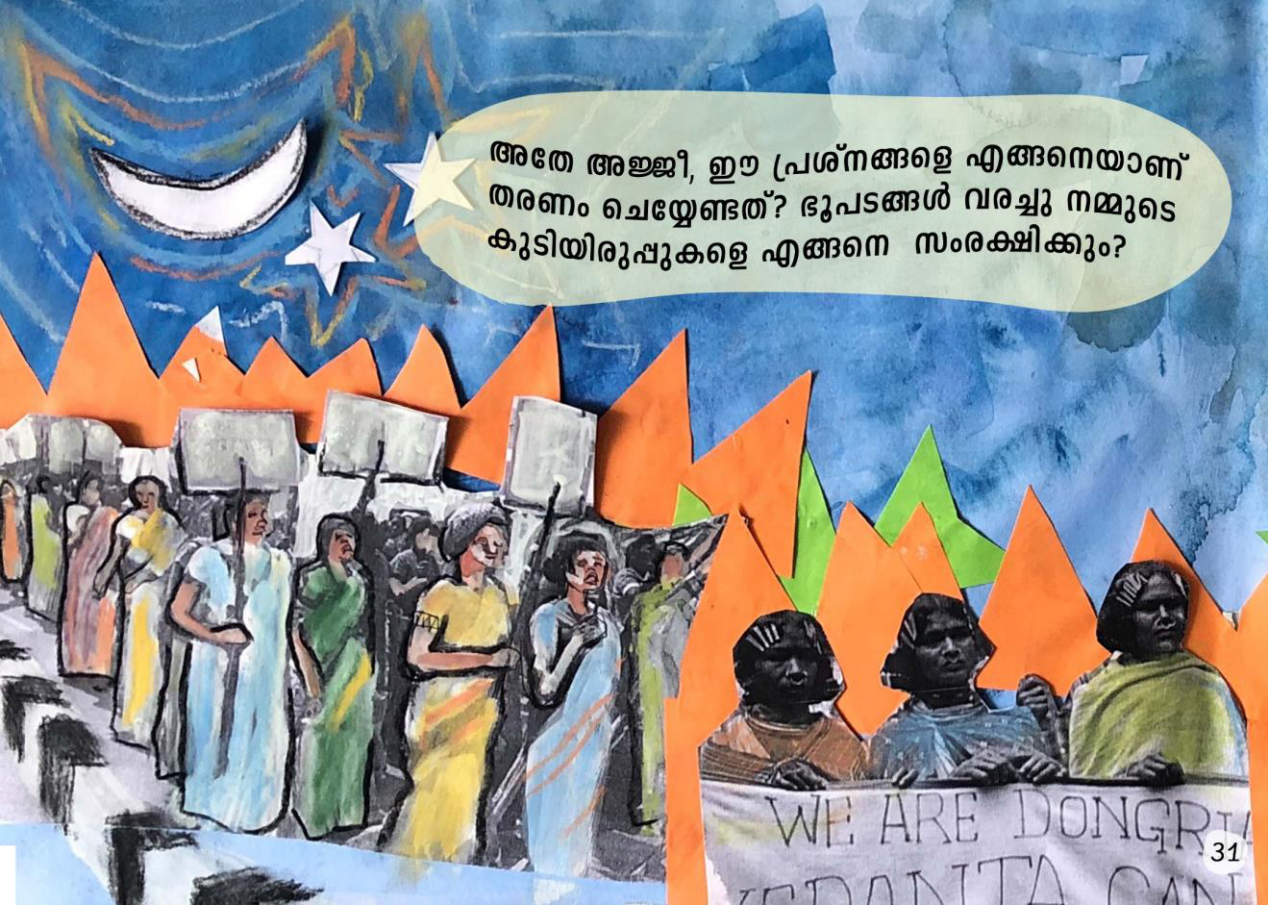 അതേ അജ്ജീ, ഈ പ്രശ്നങ്ങളെ എങ്ങനെയാണ്
തരണം ചെയ്യേണ്ടത്? ഭൂപടങ്ങൾ വരച്ചു നമ്മുടെ
കുടിയിരുപ്പുകളെ എങ്ങനെ സംരക്ഷിക്കും?
WE ARE DONGRIA
31